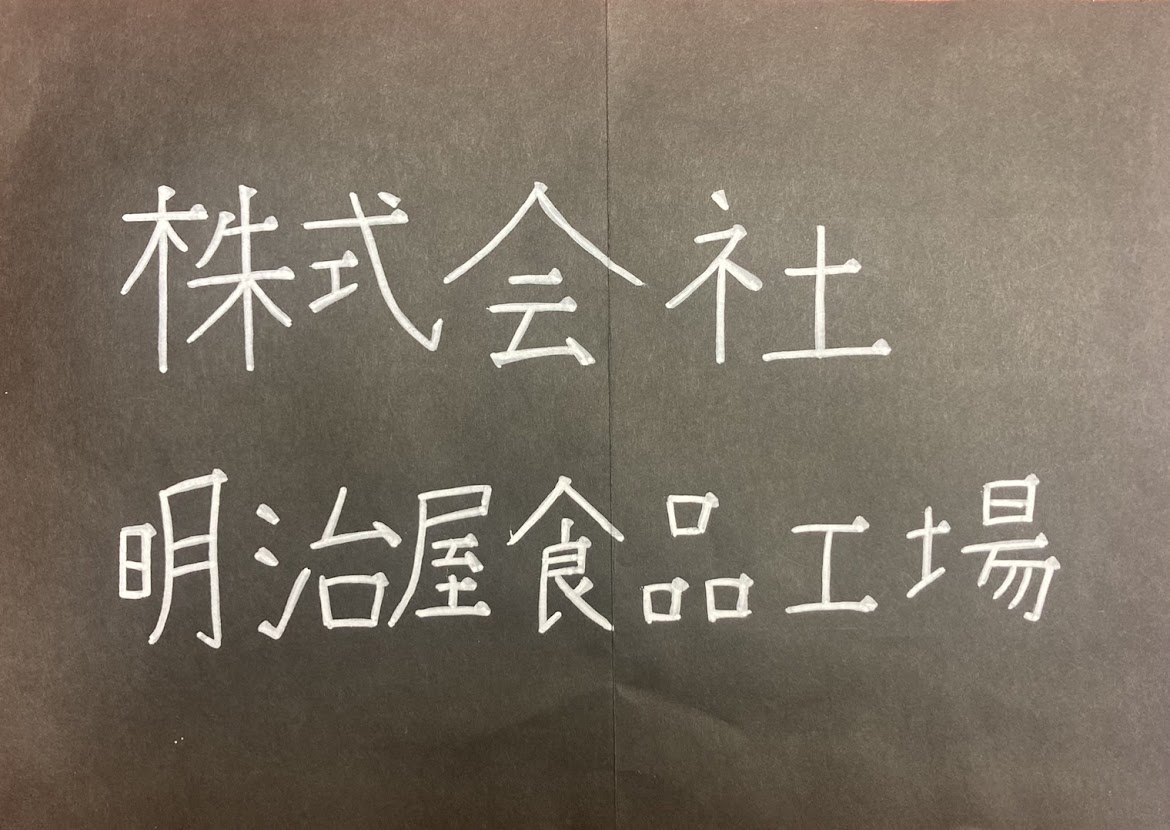 株式会社
明治屋食品工場